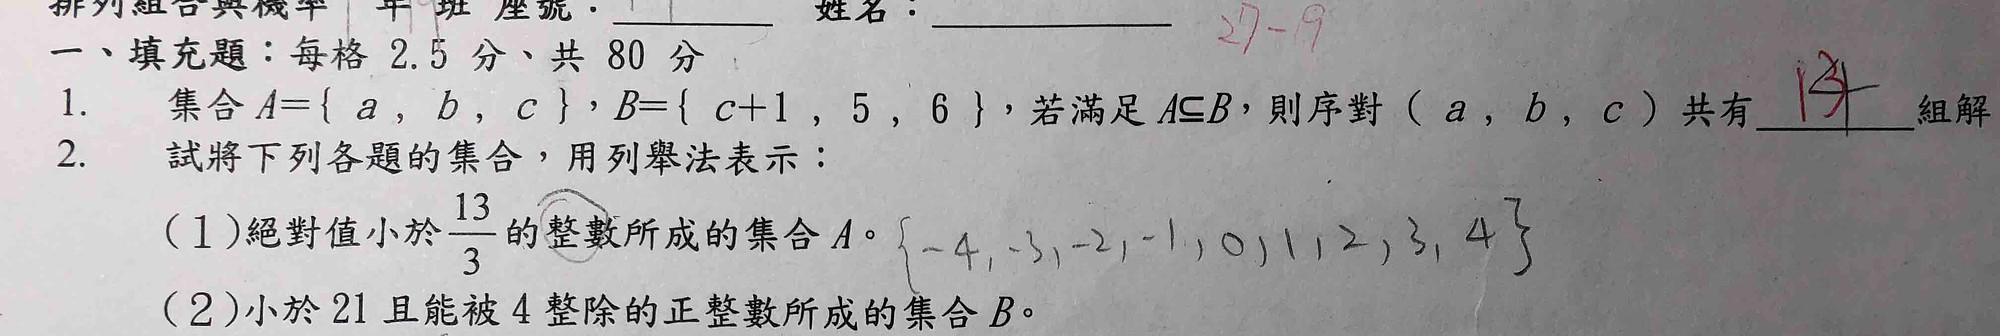 排列組合與機率 年 班 座號：________ 姓名：____________ 27-9
一、填充題：每格 2.5 分、共 80 分
1. 集合 A={ a , b , c }，B={ c+1 , 5 , 6 }，若滿足 A⊆B，則序對 ( a , b , c ) 共有________組解
2. 試將下列各題的集合，用列舉法表示：
(1)絕對值小於 13/3 的整數所成的集合 A。{-4,-3,-2,-1,0,1,2,3,4}
(2)小於 21 且能被 4 整除的正整數所成的集合 B。